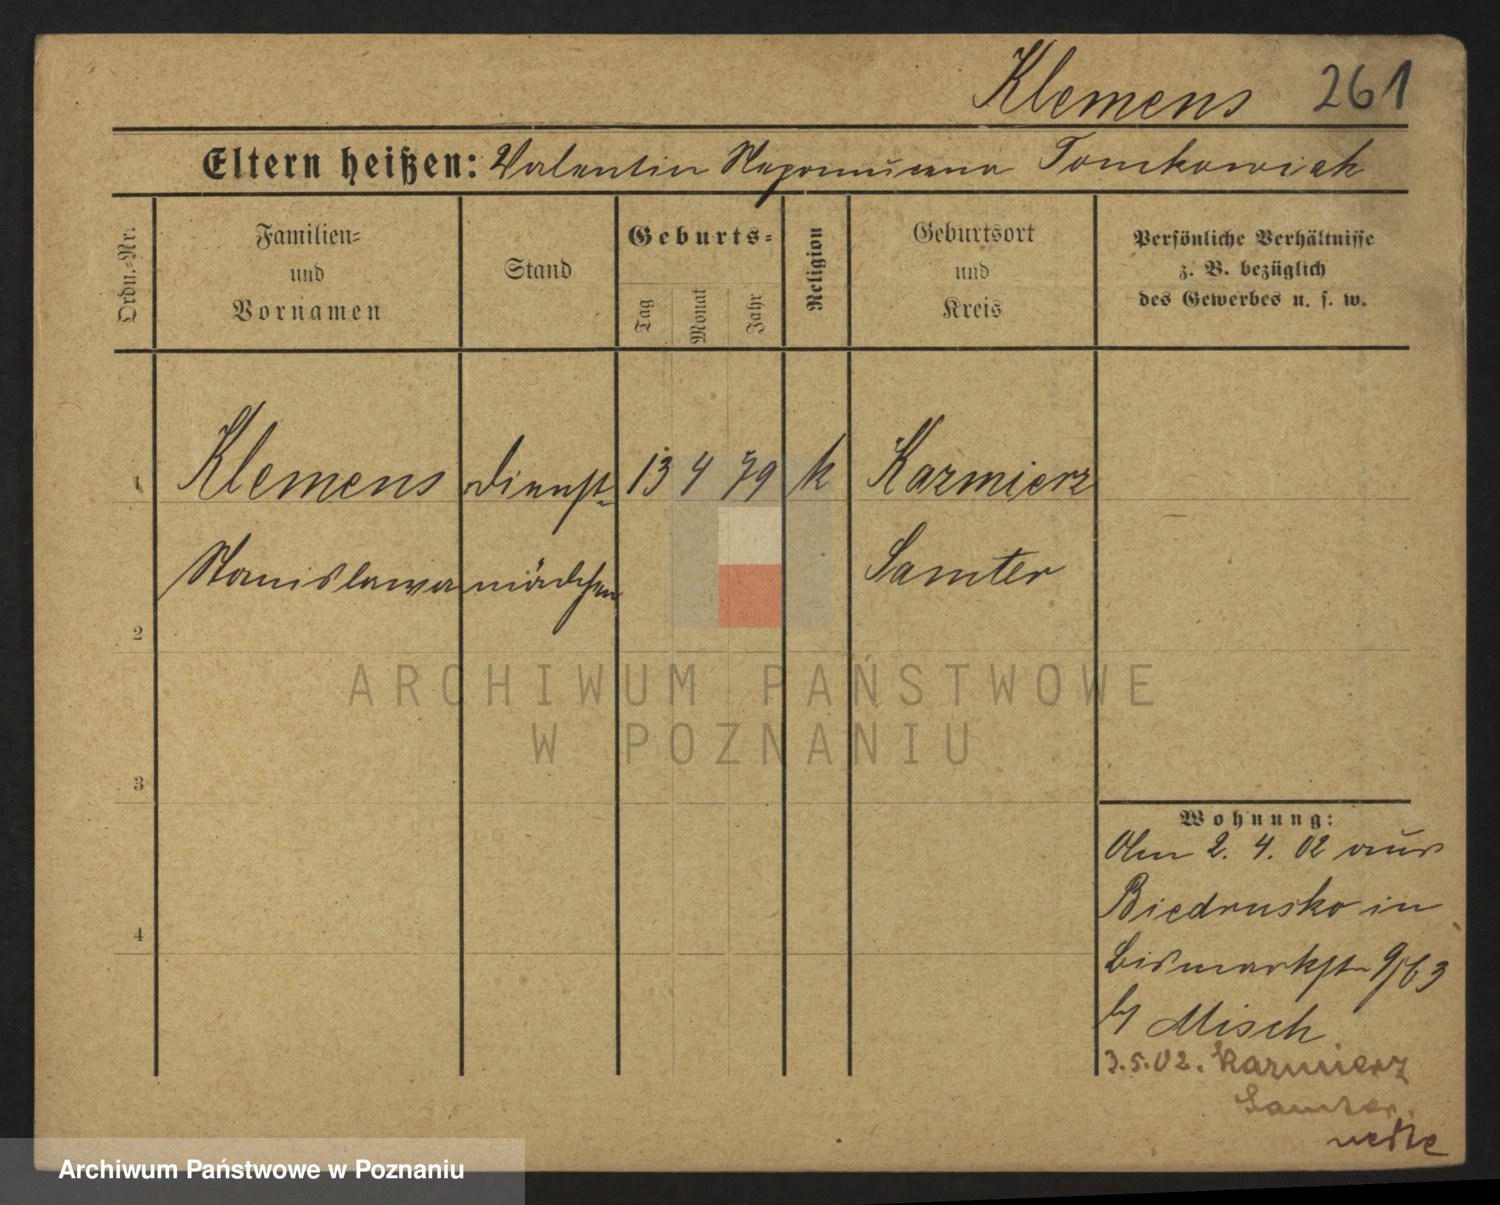 Klemens 261
Eltern heißen: Valentin Nepomucena Tomkowiak
Ordn.-Nr.
Familien-
und
Vornamen
Stand
Geburts-
Tag
Monat
Jahr
Religion
Geburtsort
und
Kreis
Persönliche Verhältnisse
z. B. bezüglich
des Gewerbes u. s. w.
1 Klemens Dienst- 13 4 79 k Kazmierz
Stanislawa mädchen Samter
2
ARCHIWUM PAŃSTWOWE
W POZNANIU
3
4
Wohnung:
Am 2. 4. 02 aus
Biedrusko in
Bismarkstr 9/63
b/ Misch
3.5.02. Kazmierz
Samter.
Archiwum Państwowe w Poznaniu